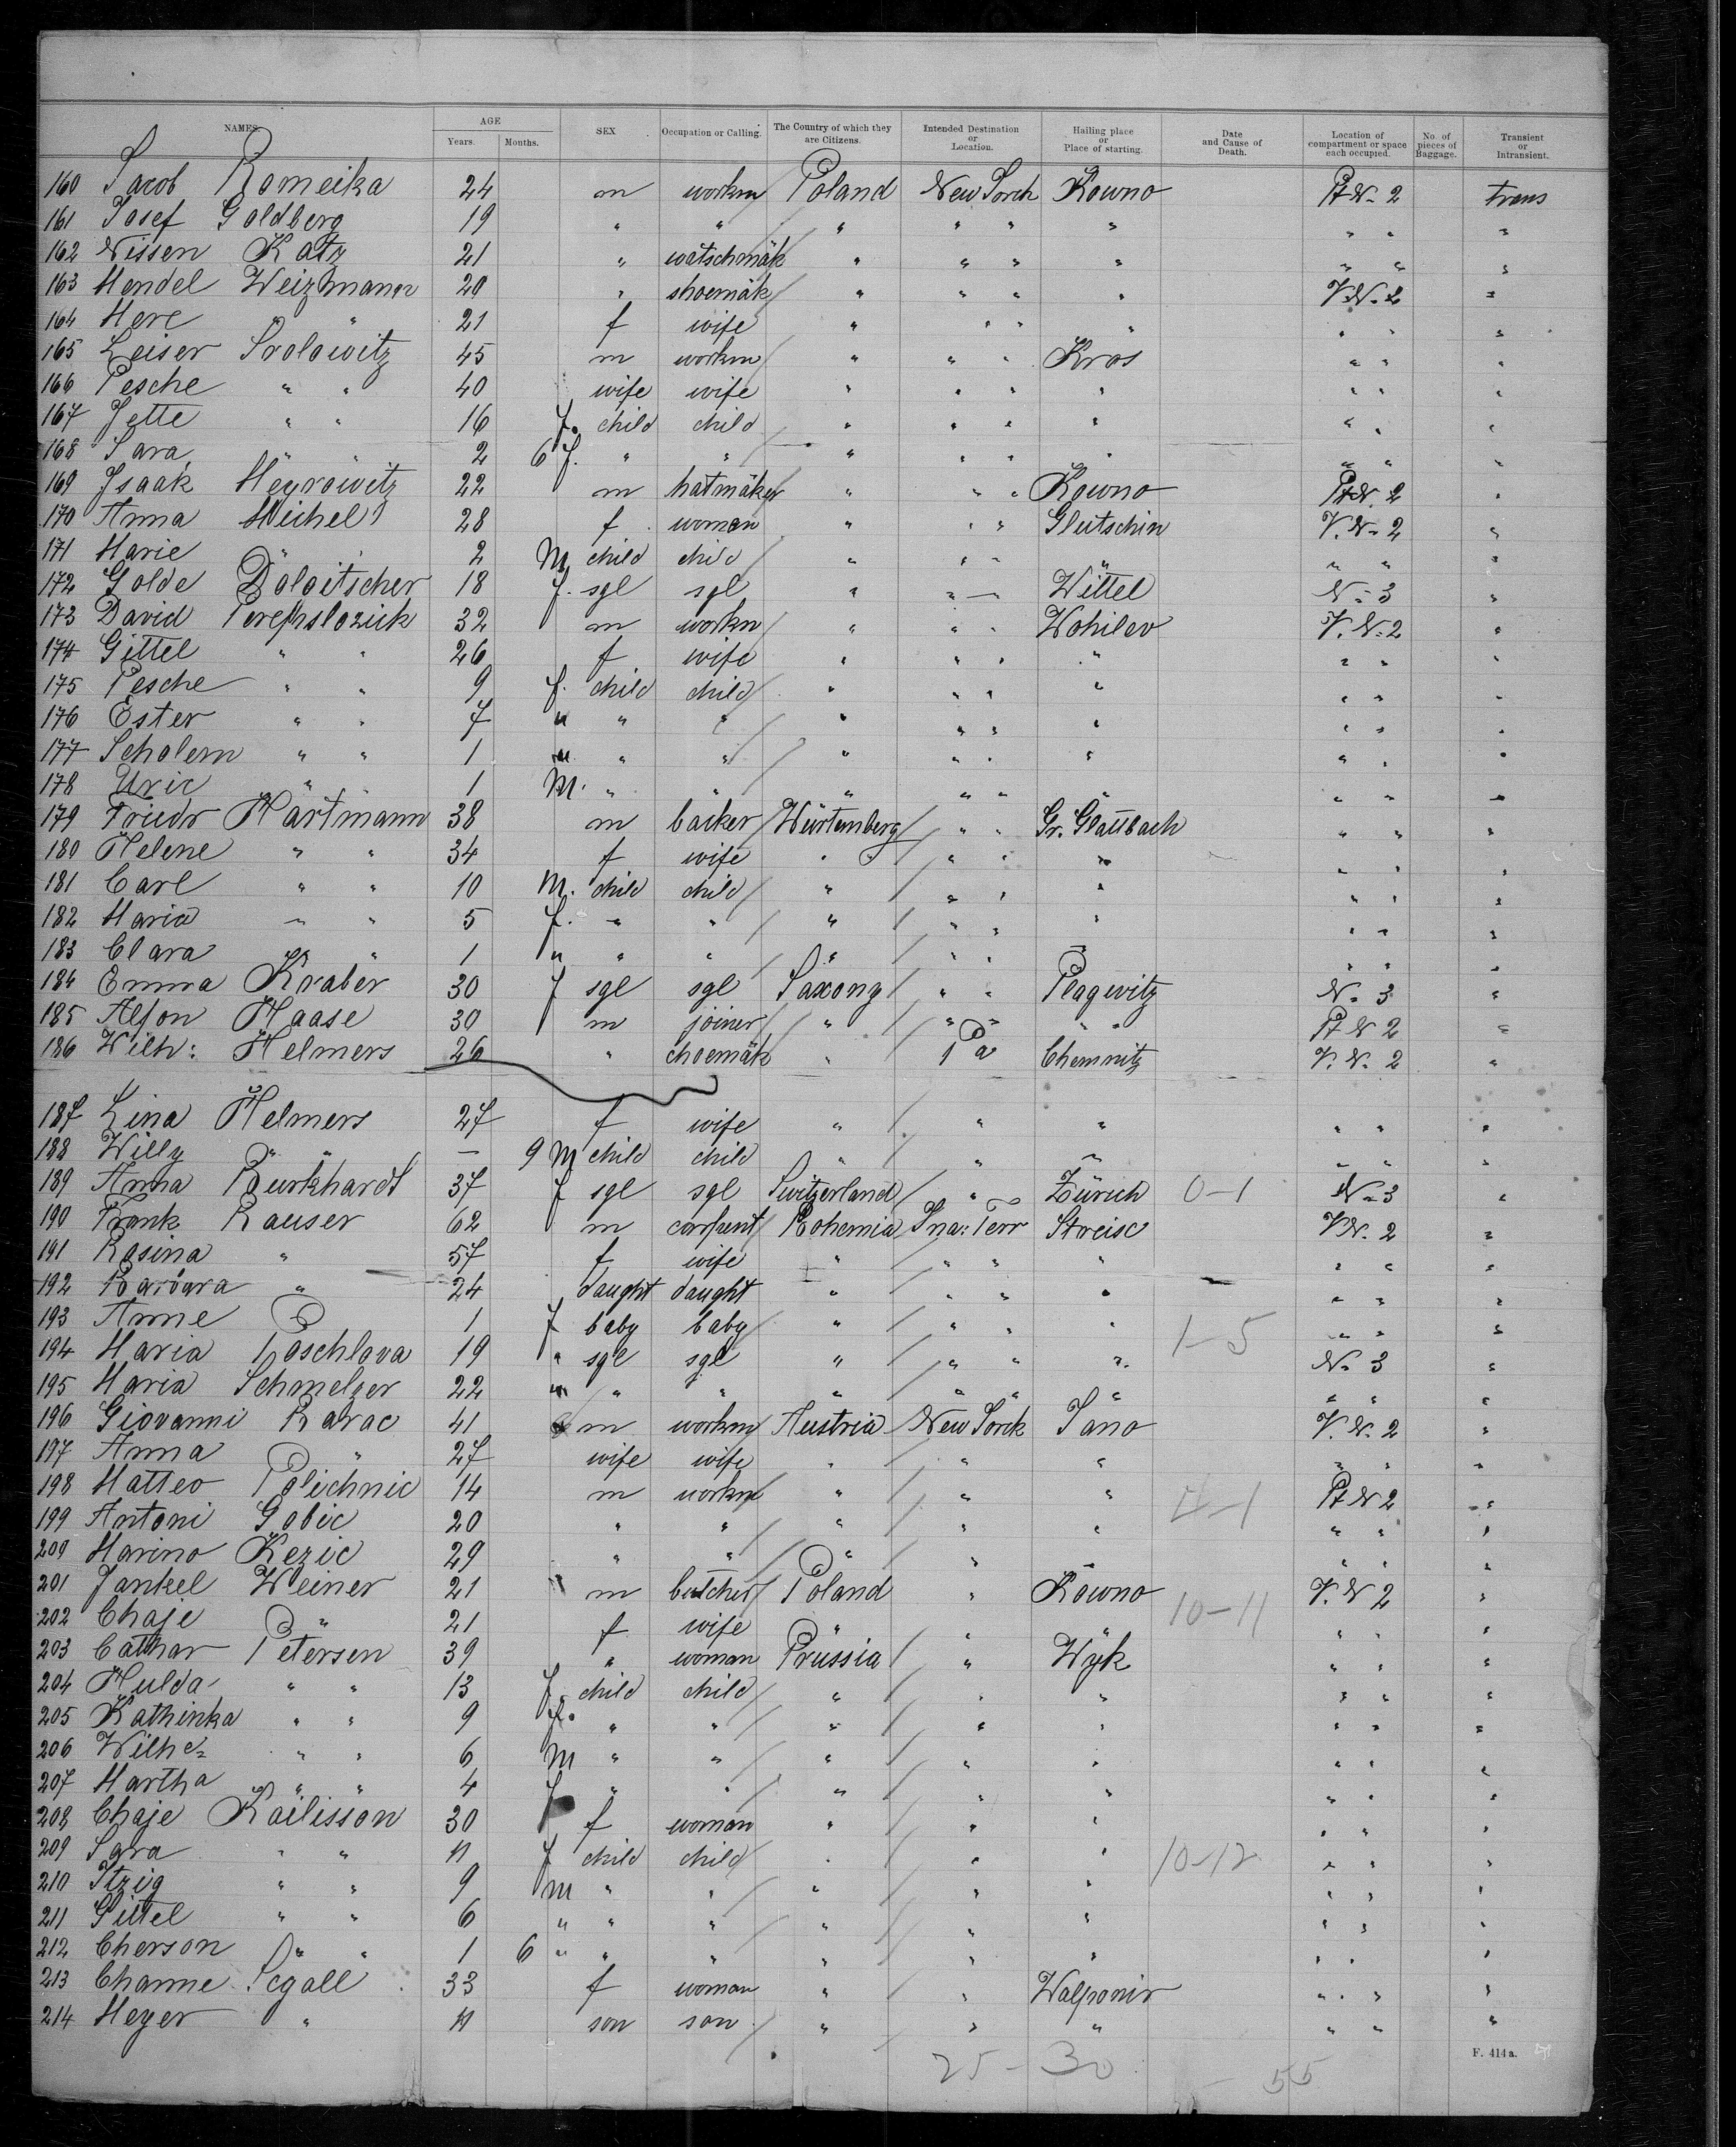 NAMES. AGE Years. Months. SEX Occupation or Calling. The Country of which they are Citizens. Intended Destination or Location. Hailing place or Place of starting. Date and Cause of Death. Location of compartment or space each occupied. No. of pieces of Baggage. Transient or Intransient.
160 Jacob Romeika 24 m workm Poland New Jorck Kowno Pt N. 2 trans
161 Josef Goldberg 19 " " " " " " " " "
162 Nissen Katz 21 " watschmäk " " " " " " "
163 Mendel Weizmann 20 " shoemäk " " " " V. N. 2 "
164 Mere " " 21 f wife " " " " " " "
165 Leiser Srolowitz 45 m workm " " " Kros " " "
166 Pesche " " 40 wife wife " " " " " " "
167 Jette " " 16 f. child child " " " " " " "
168 Sara " " 2 6 f. " " " " " " " " "
169 Isaak Meyrowitz 22 m hatmäker " " " Kowno Pt N. 2 "
170 Anna Michel 28 f woman " " " Glutschin V. N. 2 "
171 Marie " 2 M child child " " " " " " "
172 Golde Doloitscher 18 f. sgl sgl " " " Wittel N. 3 "
173 David 32 m workn " " " Wohilev V. N. 2 "
174 Gittel " " 26 f wife " " " " " " "
175 Pesche " " 9 f. child child " " " " " " "
176 Ester " " 7 " " " " " " " " " "
177 Scholem " " 1 " " " " " " " " " "
178 Uric " 1 M. " " " " " " " " "
179 Friedr Hartmann 38 m backer Würtemberg " " Gr. Glattbach " " "
180 Helene " " 34 f wife " " " " " " "
181 Carl " " 10 M. child child " " " " " " "
182 Maria " " 5 f. " " " " " " " " "
183 Clara " " 1 " " " " " " " " " "
184 Emma Kraber 30 f sgl sgl Saxony " " Plagwitz N. 3 "
185 Alfon Haase 30 m joiner " " " " " Pt N 2 "
186 Wilh: Helmers 26 " choemäk " Pa Chemnitz V. N. 2 "
187 Lina Helmers 27 f wife " " " " " "
188 Willy " " — 9 M child child " " " " " "
189 Anna Burkhardt 37 f sgl sgl Switzerland " Zürich 0-1 N. 3 "
190 Frank Rauser 62 m carpent Bohemia Terr Streise V. N. 2 "
191 Rosina " 57 f wife " " " " " " "
192 Barbara " 24 daught daught " " " " " " "
193 Anne 1 f baby baby " " " " " " "
194 Maria Poschlova 19 " sgl sgl " " " " 1-5 N. 3 "
195 Maria Schmelzer 22 " " " " " " " " " "
196 Giovanni Rarac 41 m workm Austria New Jorck Jano V. N. 2 "
197 Anna " 27 wife wife " " " " " "
198 Matteo Polichnic 14 m workm " " " Pt N 2 "
199 Antoni Gobic 20 " " " " " " " "
200 Marino Kezic 29 " " " " " " " "
201 Jankel Weiner 21 m butcher Poland " Kowno 10-11 V. N 2 "
202 Chaje " 21 f wife " " " " " "
203 Cathar Petersen 39 " woman Prussia " Wyk " " "
204 Hulda " " 13 f. child child " " " " " "
205 Kathinka " " 9 f. " " " " " " " "
206 Wilhe= " " 6 M " " " " " " " "
207 Martha " " 4 f " " " " " " " "
208 Chaje Kailisson 30 f woman " " " " " "
209 Sara " " 11 f child child " " " 10-12 " " "
210 Itzig " " 9 m " " " " " " " "
211 Gittel " " 6 " " " " " " " " "
212 Cherson " " 1 6 " " " " " " " " "
213 Channe Segall 33 f woman " " Walponir " " "
214 Meyer " 11 son son " " " " " "
F. 414a.
25-30 55